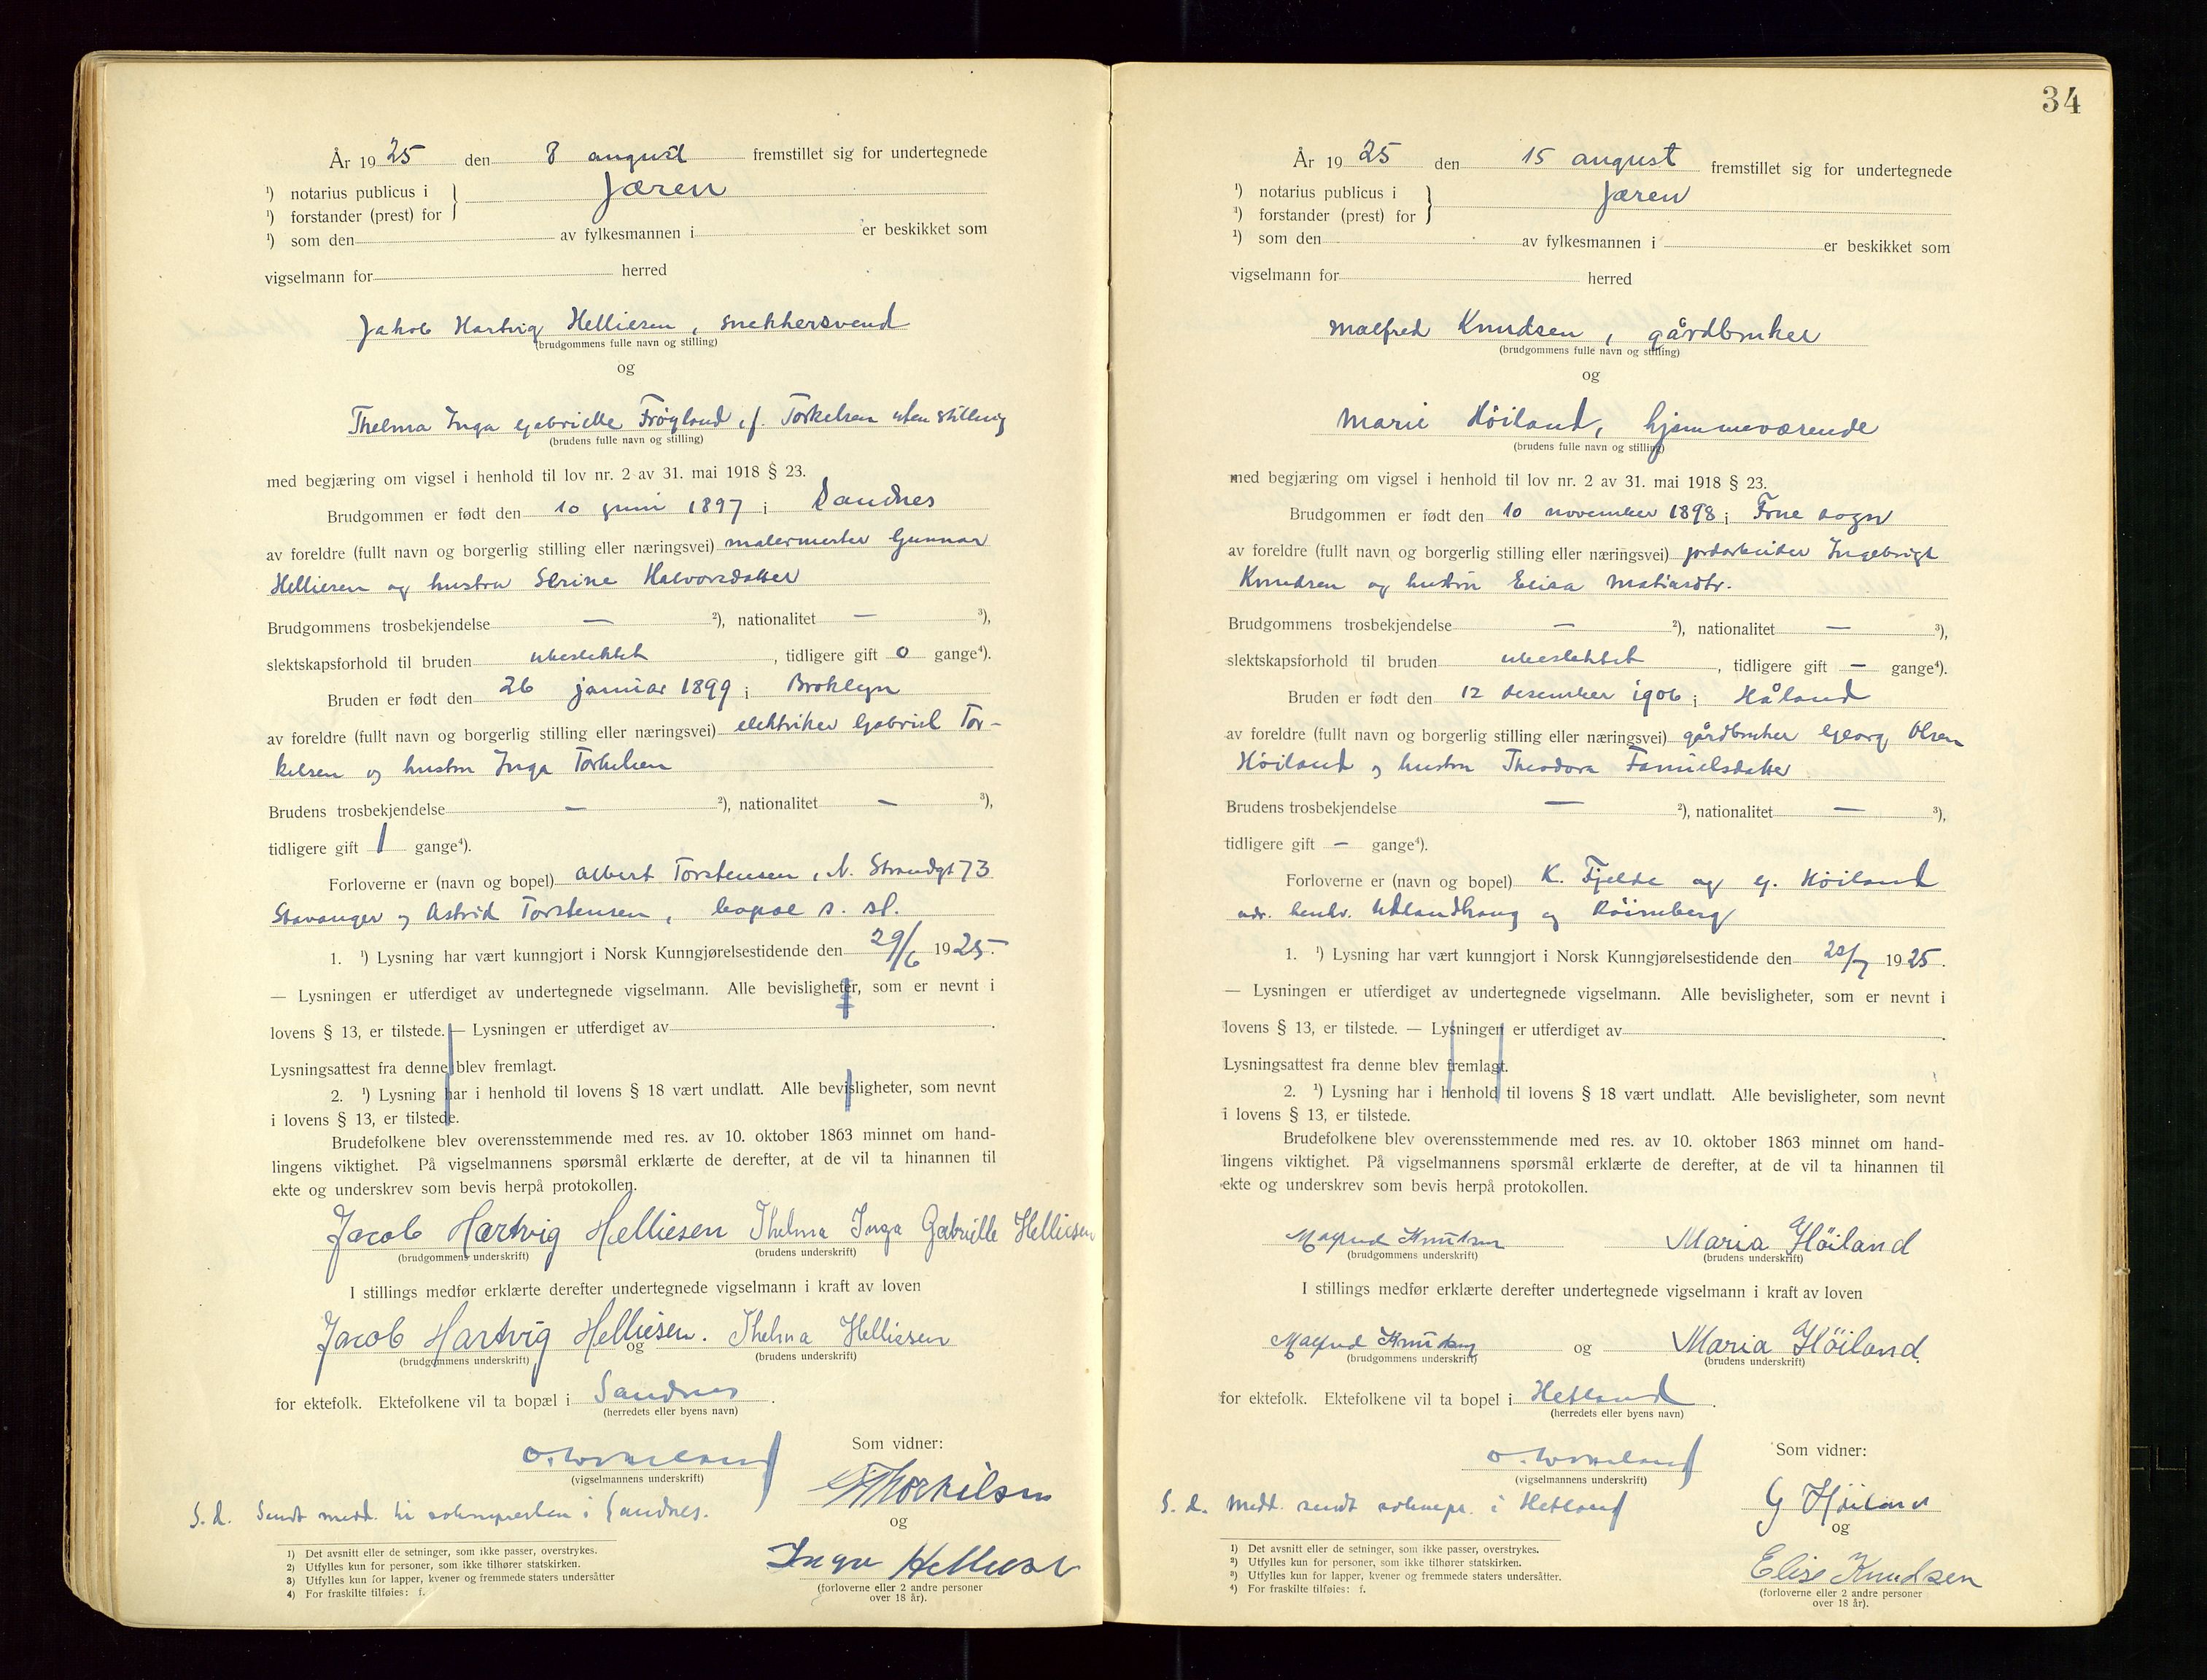 År 1925 den 8 august fremstillet sig for undertegnede
¹) notarius publicus i } Jæren
¹) forstander (prest) for
¹) som den av fylkesmannen i er beskikket som
vigselmann for herred
Jakob Hartvig Helliesen, snekkersvend
(brudgommens fulle navn og stilling)
og
Thelma Inga Gabrielle Frøyland, f. Torkelsen uten stilling
(brudens fulle navn og stilling)
med begjæring om vigsel i henhold til lov nr. 2 av 31. mai 1918 § 23.
Brudgommen er født den 10 juni 1897 i Sandnes
av foreldre (fullt navn og borgerlig stilling eller næringsvei) malermester Gunnar
Helliesen og hustru Serine Halvorsdatter
Brudgommens trosbekjendelse — ²), nationalitet — ³),
slektskapsforhold til bruden ubeslektet, tidligere gift 0 gange⁴).
Bruden er født den 26 januar 1899 i Broklyn
av foreldre (fullt navn og borgerlig stilling eller næringsvei) elektriker Gabriel Tor-
kelsen og hustru Inga Torkelsen
Brudens trosbekjendelse — ²), nationalitet — ³),
tidligere gift 1 gange⁴).
Forloverne er (navn og bopel) Albert Torstensen, N. Strandgt 73
Stavanger og Astrid Torstensen, bopæl s. st.
1. ¹) Lysning har vært kunngjort i Norsk Kunngjørelsestidende den 29/6 1925.
— Lysningen er utferdiget av undertegnede vigselmann. Alle bevisligheter, som er nevnt i
lovens § 13, er tilstede. — Lysningen er utferdiget av .
Lysningsattest fra denne blev fremlagt.
2. ¹) Lysning har i henhold til lovens § 18 vært undlatt. Alle bevisligheter, som nevnt
i lovens § 13, er tilstede.
Brudefolkene blev overensstemmende med res. av 10. oktober 1863 minnet om hand-
lingens viktighet. På vigselmannens spørsmål erklærte de derefter, at de vil ta hinannen til
ekte og underskrev som bevis herpå protokollen.
Jacob Hartvig Helliesen Thelma Inga Gabrielle Helliesen
(brudgommens underskrift) (brudens underskrift)
I stillings medfør erklærte derefter undertegnede vigselmann i kraft av loven
Jacob Hartvig Helliesen. og Thelma Helliesen
(brudgommens underskrift) (brudens underskrift)
for ektefolk. Ektefolkene vil ta bopæl i Sandnes.
(herredets eller byens navn)
Som vidner:
(vigselmannens underskrift)
G Thorkilsen
S. d. Sendt medd. til soknepresten i Sandnes.
og
Inga Helliesen
(forloverne eller 2 andre personer
over 18 år).
1) Det avsnitt eller de setninger, som ikke passer, overstrykes.
2) Utfylles kun for personer, som ikke tilhører statskirken.
3) Utfylles kun for lapper, kvener og fremmede staters undersåtter
4) For fraskilte tilføies: f.
34
År 1925 den 15 august fremstillet sig for undertegnede
¹) notarius publicus i } Jæren
¹) forstander (prest) for
¹) som den av fylkesmannen i er beskikket som
vigselmann for herred
Malfred Knudsen, gårdbruker
(brudgommens fulle navn og stilling)
og
Marie Höiland, hjemmeværende
(brudens fulle navn og stilling)
med begjæring om vigsel i henhold til lov nr. 2 av 31. mai 1918 § 23.
Brudgommen er født den 10 november 1898 i sogn
av foreldre (fullt navn og borgerlig stilling eller næringsvei) jordarbeider Ingebrigt
Knudsen og hustru Elisa Matiasdtr.
Brudgommens trosbekjendelse — ²), nationalitet — ³),
slektskapsforhold til bruden ubeslektet, tidligere gift — gange⁴).
Bruden er født den 12 desember 1906 i Håland
av foreldre (fullt navn og borgerlig stilling eller næringsvei) gårdbruker Georg Olsen
Höiland og hustru Theodora
Brudens trosbekjendelse — ²), nationalitet — ³),
tidligere gift — gange⁴).
Forloverne er (navn og bopel) K. Fjelde og G. Höiland
adr. henhv. og
1. ¹) Lysning har vært kunngjort i Norsk Kunngjørelsestidende den 1925.
— Lysningen er utferdiget av undertegnede vigselmann. Alle bevisligheter, som er nevnt i
lovens § 13, er tilstede. — Lysningen er utferdiget av .
Lysningsattest fra denne blev fremlagt.
2. ¹) Lysning har i henhold til lovens § 18 vært undlatt. Alle bevisligheter, som nevnt
i lovens § 13, er tilstede.
Brudefolkene blev overensstemmende med res. av 10. oktober 1863 minnet om hand-
lingens viktighet. På vigselmannens spørsmål erklærte de derefter, at de vil ta hinannen til
ekte og underskrev som bevis herpå protokollen.
Malfred Knudsen Maria Höiland
(brudgommens underskrift) (brudens underskrift)
I stillings medfør erklærte derefter undertegnede vigselmann i kraft av loven
Malfred Knudsen og Maria Höiland.
(brudgommens underskrift) (brudens underskrift)
for ektefolk. Ektefolkene vil ta bopel i Hetland.
(herredets eller byens navn)
Som vidner:
(vigselmannens underskrift)
G Höiland
S. d. Medd. sendt soknepr. i Hetland
og
Elise Knudsen
(forloverne eller 2 andre personer
over 18 år).
¹) Det avsnitt eller de setninger, som ikke passer, overstrykes.
²) Utfylles kun for personer, som ikke tilhører statskirken.
³) Utfylles kun for lapper, kvener og fremmede staters undersåtter.
⁴) For fraskilte tilføies: f.